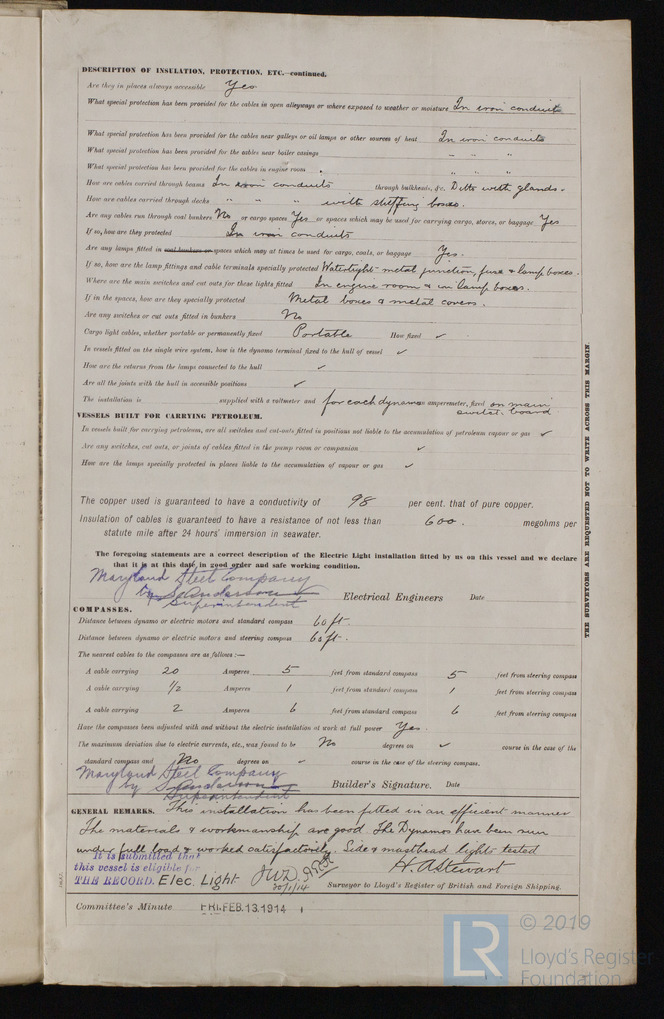 DESCRIPTION OF INSULATION, PROTECTION, ETC.—continued.
Are they in places always accessible Yes
What special protection has been provided for the cables in open alleyways or where exposed to weather or moisture In iron conduits
What special protection has been provided for the cables near galleys or oil lamps or other sources of heat In iron conduits
What special protection has been provided for the cables near boiler casings " " "
What special protection has been provided for the cables in engine room " " "
How are cables carried through beams In iron conduits through bulkheads, &c. Ditto with glands.
How are cables carried through decks " " " " with stuffing boxes.
Are any cables run through coal bunkers No or cargo spaces Yes or spaces which may be used for carrying cargo, stores, or baggage Yes
If so, how are they protected In iron conduits
Are any lamps fitted in coal bunkers or spaces which may at times be used for cargo, coals, or baggage Yes.
If so, how are the lamp fittings and cable terminals specially protected Watertight metal junction, fuse & lamp boxes.
Where are the main switches and cut outs for these lights fitted In engine room & in lamp boxes.
If in the spaces, how are they specially protected Metal boxes & metal covers.
Are any switches or cut outs fitted in bunkers No
Cargo light cables, whether portable or permanently fixed Portable How fixed ✓
In vessels fitted on the single wire system, how is the dynamo terminal fixed to the hull of vessel ✓
How are the returns from the lamps connected to the hull ✓
Are all the joints with the hull in accessible positions ✓
The installation is supplied with a voltmeter and for each dynamo an amperemeter, fixed on main
switch board
VESSELS BUILT FOR CARRYING PETROLEUM.
In vessels built for carrying petroleum, are all switches and cut-outs fitted in positions not liable to the accumulation of petroleum vapour or gas ✓
Are any switches, cut outs, or joints of cables fitted in the pump room or companion ✓
How are the lamps specially protected in places liable to the accumulation of vapour or gas ✓
The copper used is guaranteed to have a conductivity of 98 per cent. that of pure copper.
Insulation of cables is guaranteed to have a resistance of not less than 600. megohms per
statute mile after 24 hours' immersion in seawater.
The foregoing statements are a correct description of the Electric Light installation fitted by us on this vessel and we declare
that it is at this date in good order and safe working condition.
Maryland Steel Company
by Anderson
Superintendent
Electrical Engineers Date
COMPASSES.
Distance between dynamo or electric motors and standard compass 60 ft.
Distance between dynamo or electric motors and steering compass 60 ft.
The nearest cables to the compasses are as follows:—
A cable carrying 20 Amperes 5 feet from standard compass 5 feet from steering compass
A cable carrying 1/2 Amperes 1 feet from standard compass 1 feet from steering compass
A cable carrying 2 Amperes 6 feet from standard compass 6 feet from steering compass
Have the compasses been adjusted with and without the electric installation at work at full power Yes.
The maximum deviation due to electric currents, etc., was found to be No degrees on ✓ course in the case of the
standard compass and No degrees on ✓ course in the case of the steering compass.
Maryland Steel Company
by Anderson
Superintendent
Builder's Signature. Date
GENERAL REMARKS. This installation has been fitted in an efficient manner
The materials & workmanship are good. The Dynamos have been run
under full load & worked satisfactorily. Side & masthead lights tested
It is submitted that
this vessel is eligible for
THE RECORD. Elec. Light JWD 20/1/14
H.A. Stewart
Surveyor to Lloyd's Register of British and Foreign Shipping.
Committee's Minute FRI. FEB. 13. 1914
THE SURVEYORS ARE REQUESTED NOT TO WRITE ACROSS THIS MARGIN.
LR
© 2019
Lloyd's Register
Foundation